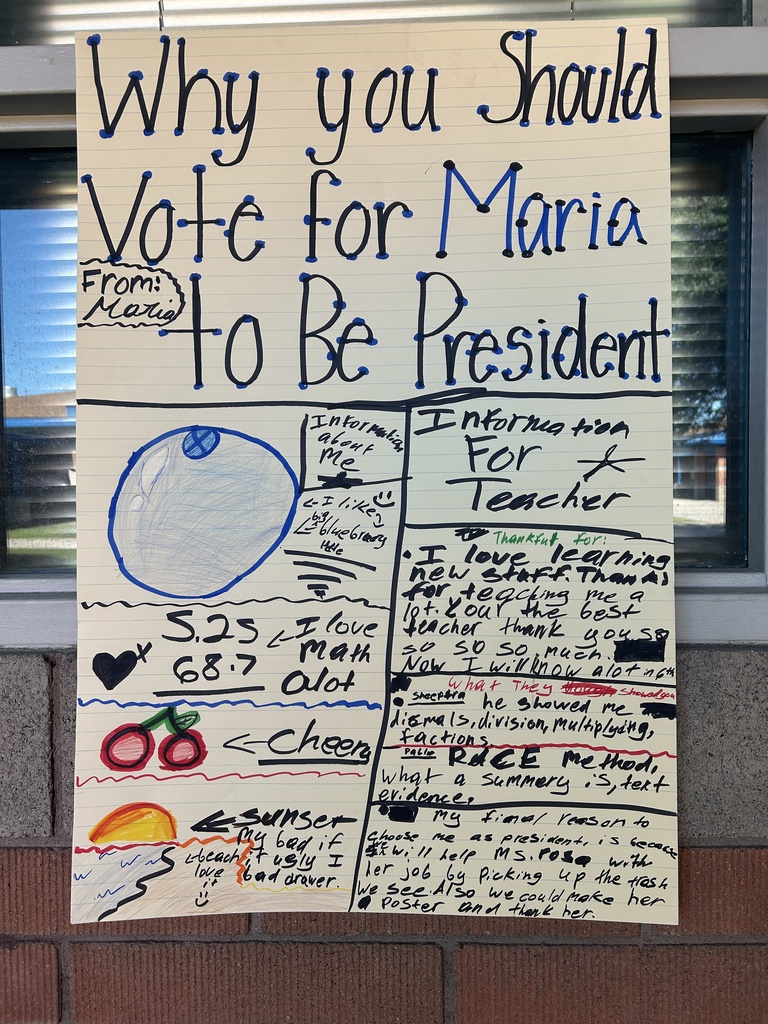 Why you Should
Vote for Maria
From:
Maria
to Be President
Information
about
Me
← I like
big
← blueberry
5.25
x 68.7
← I love
Math
alot
← Cheery
← sunset
My bad if
it ugly I
bad drawer.
← beach
love
it
Information
For
Teacher
Thankful for:
• I love learning
new stuff. Thanks
for teaching me a
lot. Your the best
teacher thank you so
so so so much.
Now I will know alot in 6th
What They Showed you
he showed me
dismals, division, multiplying,
factions
Pablo RACE Method,
what a summary is, text
evidence.
My final reason to
choose me as president, is because
will help Ms. rosa with
her job by Picking up the trash
we see. Also we could make her
a Poster and thank her.